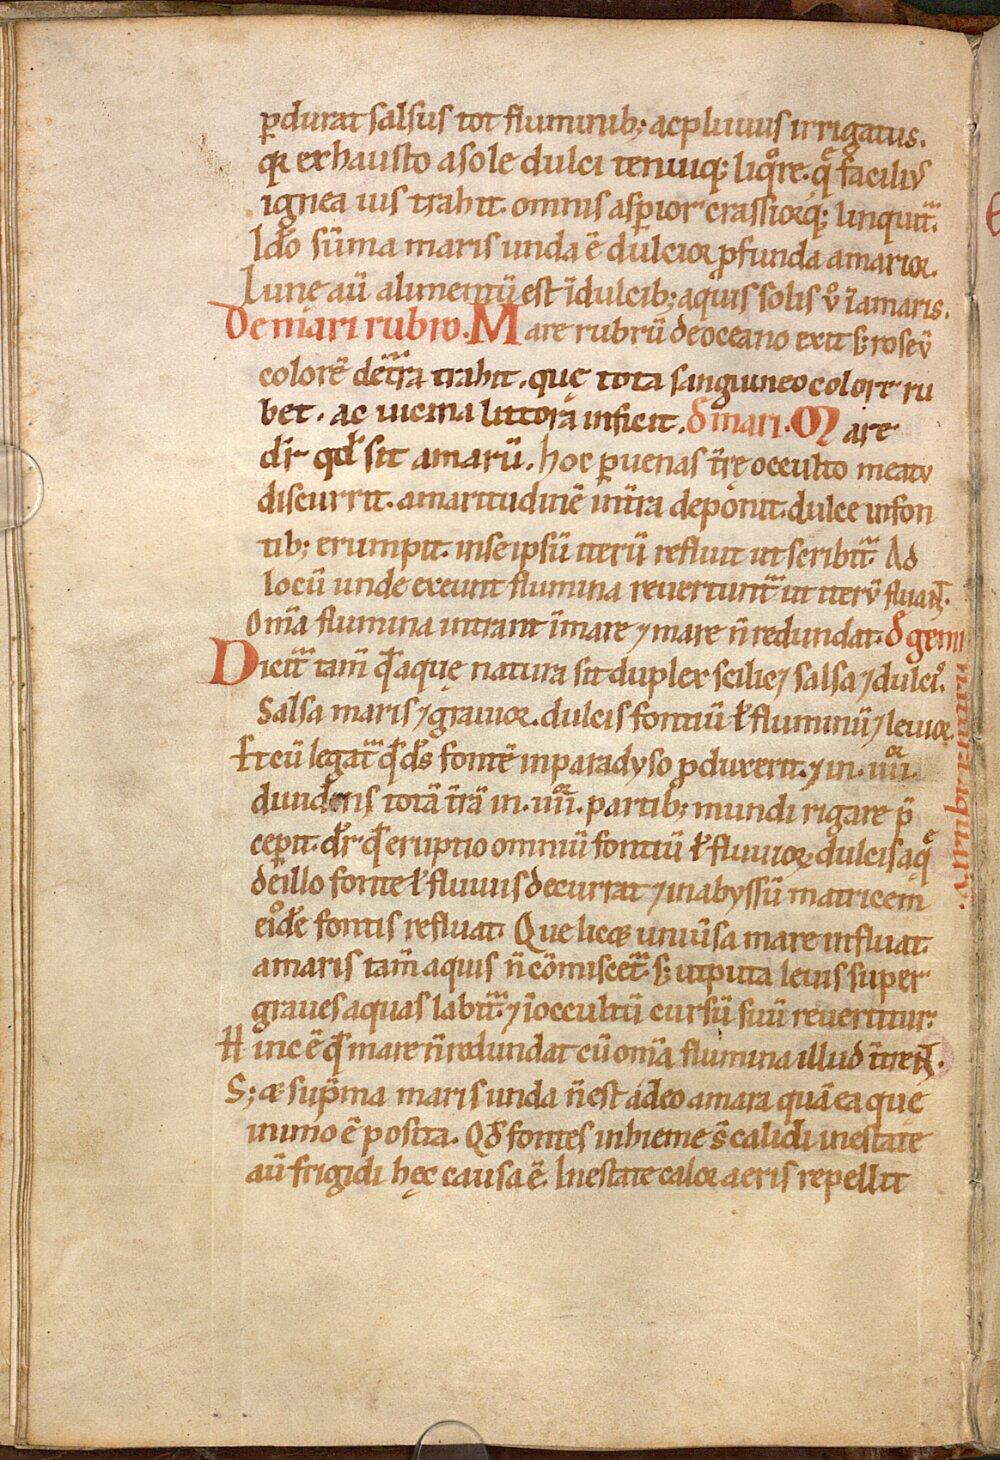 ꝑdurat salsus tot fluminib; ac pluuiis irrigatus.
qͥ exhausto a sole dulci tenuiq; liqͦre. qͥa facilius
ignea uis trahit. omnis asꝑior crassiorq; linquit᷑.
Ido sūma maris unda ē dulcior ꝓfunda amarior.
Lunę aū alimentū est ī dulcib; aquis solis ū ī amaris.
De mari rubro. Mare rubrū de oceano exit s; roseū
colorē de t̄ra trahit. quę tota sanguineo colore ru
bet. ac uicina littora inficit. đ mari. Mare
dr̄ qd̄ sit amarū. hoc ꝑ uenas t̄rę occulto meatu
discurrit. amaritudinē intra deponit. dulce in fon
tib; erumpit. in se ipsū iterū refluit ut scribit᷑. Ad
locū unde exeunt flumina reuertunt᷑ ut iterū fluaɴt.
Om̄a flumina intrant ī mare ⁊ mare n̄ redundat. đ gemi
Dicit᷑ tam̄ qd̄ aquę natura sit duplex scilic; salsa ⁊ dulcis.
Salsa maris ⁊ grauior. dulcis fontiū ł fluminū ⁊ leuior.
Et cū legat᷑ qd̄ ds̄ fontē in paradyso ꝓduxerit. ⁊ in .iiiior.
dundens totā t̄rā in .iiiior. partib; mundi rigare p̄
cepit. dr̄ qd̄ eruptio omniū fontiū ł fluuiorꝝ dulcis aquę
de illo fonte ł fluuiis decurrat ⁊ in abyssū matricem
eiꝰdē fontis refluat. Que licet uniūsa mare influat
amaris tam̄ aquis n̄ cōmiscet᷑. s; utputa leuis super
graues aquas labit᷑. ⁊ ī occultū cursū suū reuertitur.
Hinc ē qd̄ mare n̄ redundat cū om̄a flumina illud īt̄reɴt.
S; & sup̄ma maris unda n̄ est adeo amara quā ea que
in imo ē posita. Qđ fontes in hieme s̄ calidi in estate
aū frigidi hęc causa ē. In estate calor aeris repellit
natura aquarū.